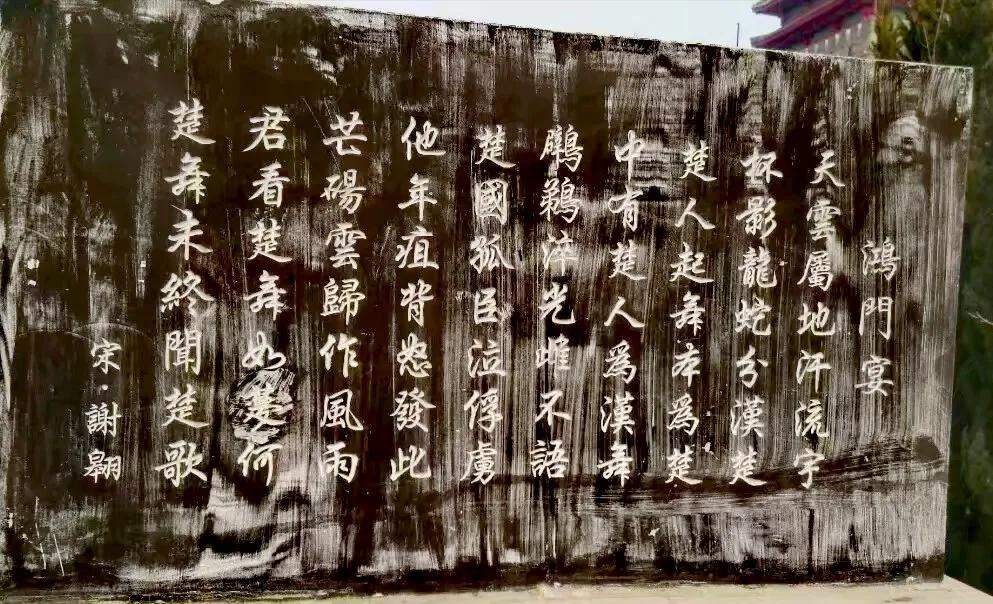 鴻門宴
天雲屬地汗流宇
杯影龍蛇分漢楚
楚人起舞本為楚
中有楚人為漢舞
鸊鵜淬光雌不語
楚國孤臣泣俘虜
他年疽背怒發此
芒碭雲歸作風雨
君看楚舞如楚何
楚舞未終聞楚歌
宋·謝翱